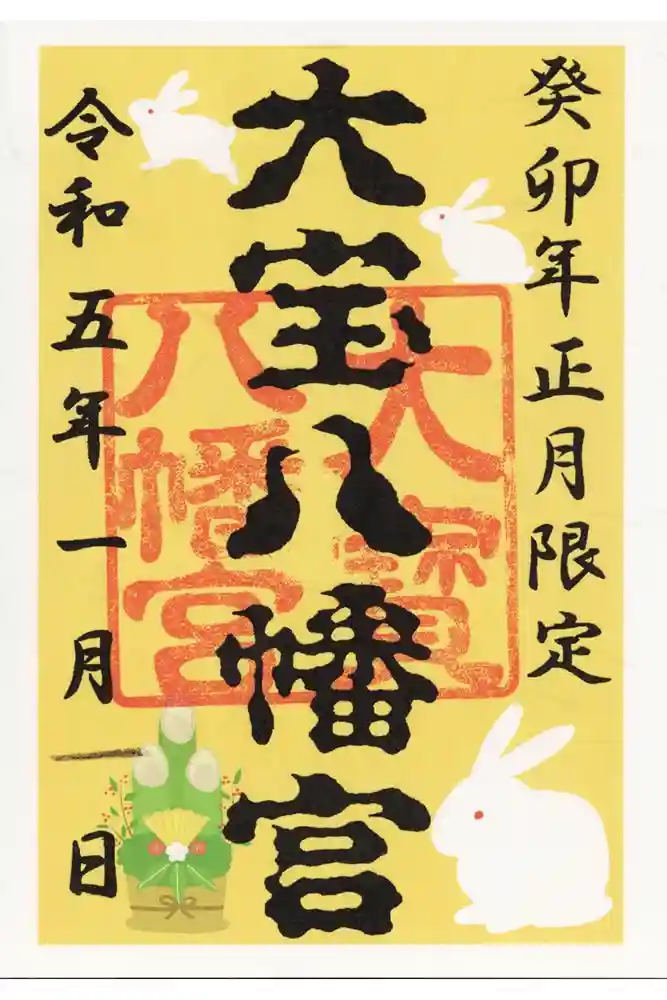 癸卯年正月限定
大宝八幡宮
大寳
八幡宮
令和五年一月一日